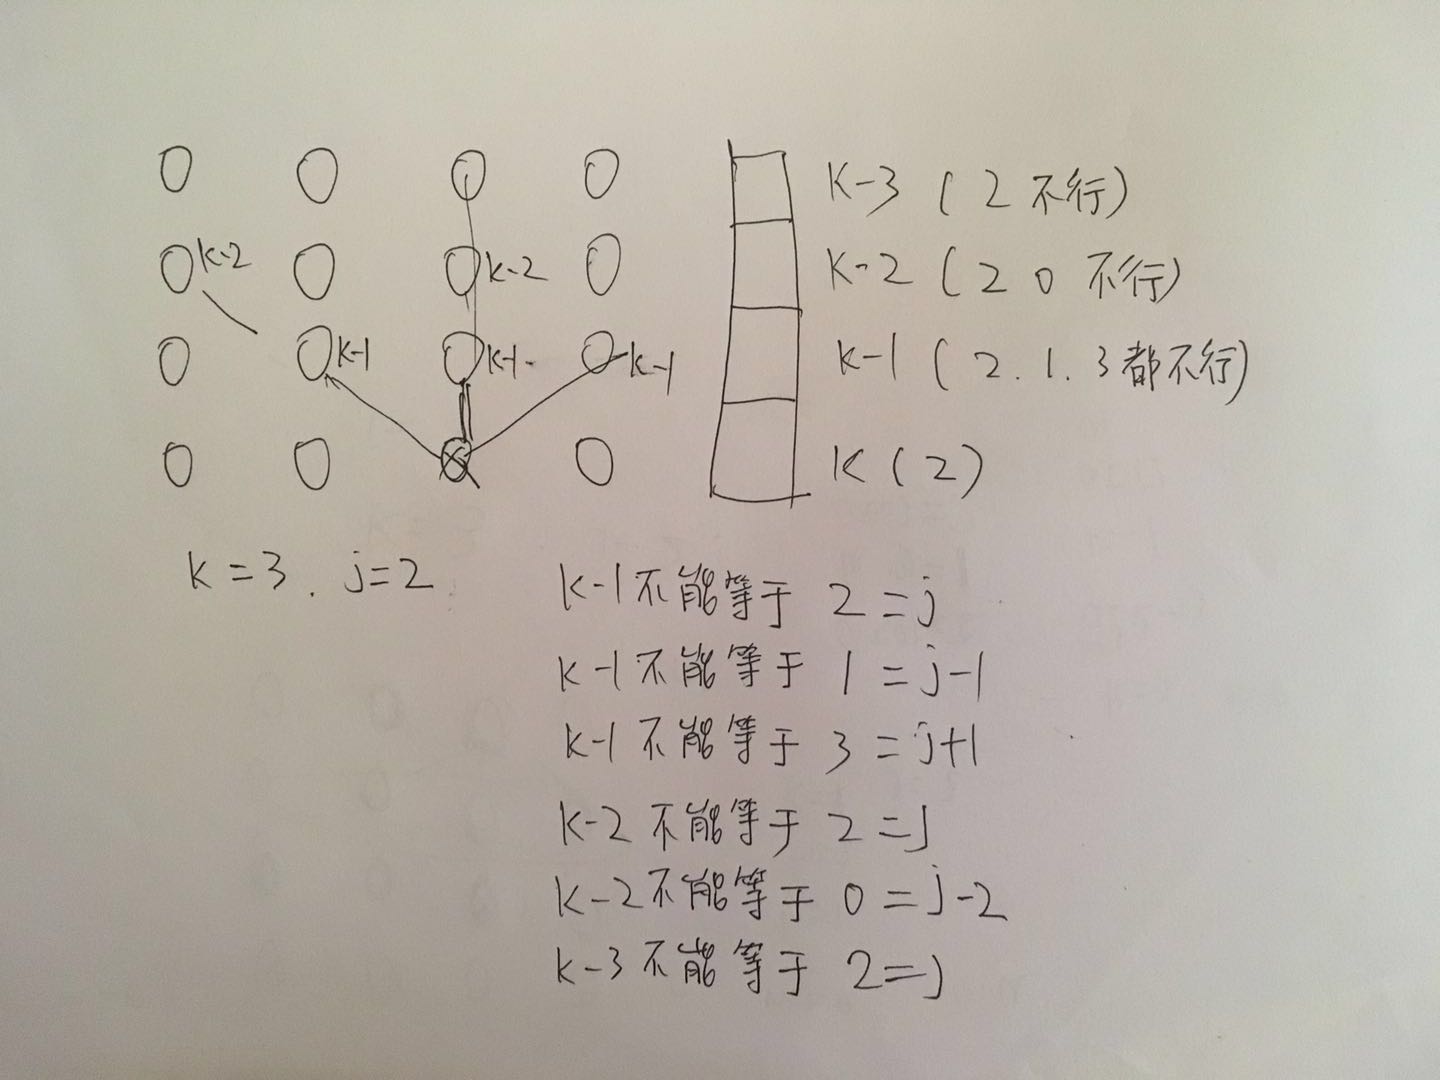 K-3 ( 2 不行)
k-2 k-2 K-2 ( 2 0 不行)
k-1 k-1. k-1 k-1 ( 2. 1. 3 都不行)
K ( 2 )
K = 3 . j=2
K-1 不能等于 2 = j
K-1 不能等于 1 = j-1
K-1 不能等于 3 = j+1
K-2 不能等于 2 = j
K-2 不能等于 0 = j-2
K-3 不能等于 2 = j